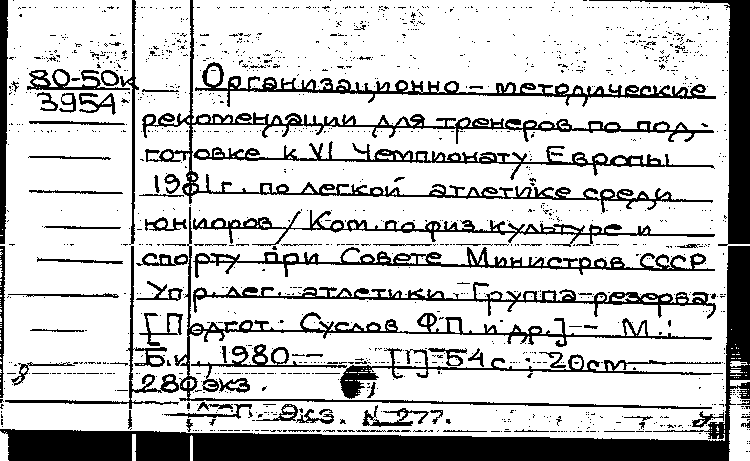 80-50к Организационно-методические
3954 рекомендации для тренеров по под-
готовке к VI Чемпионату Европы
1981 г. по легкой атлетике среди
юниоров / Ком. по физ. культуре и
спорту при Совете Министров СССР
Упр. лег. атлетики. Группа резерва;
[Подгот.: Суслов Ф.П. и др.] – М.:
Б.и., 1980. – [1], 54 с.; 20 см. –
280 экз.
Экз. № 277.